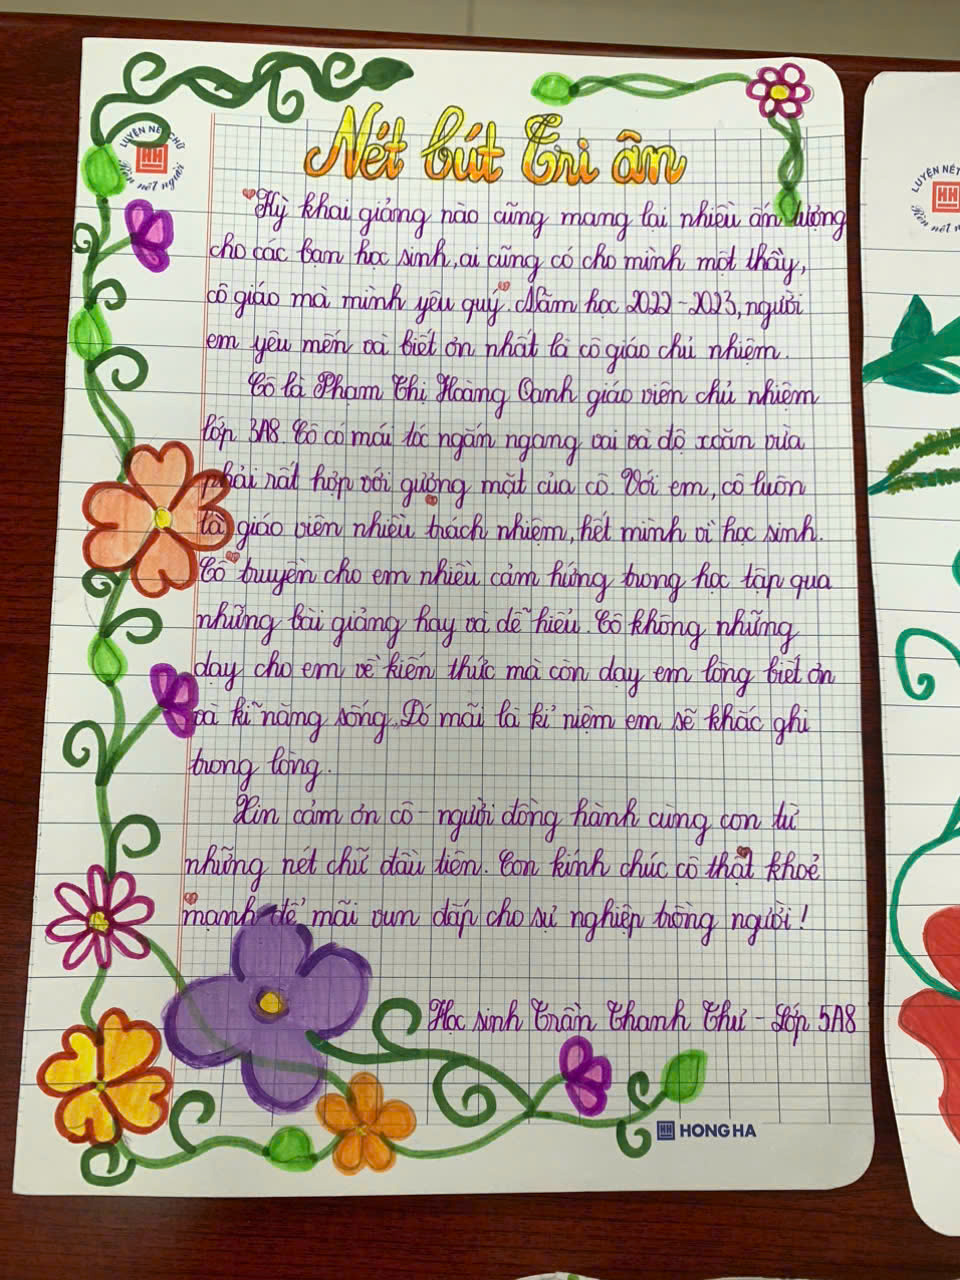 Nét bút Tri ân
LUYỆN NÉT CHỮ
Rèn nết người
Kỳ khai giảng nào cũng mang lại nhiều ấn tượng
cho các bạn học sinh, ai cũng có cho mình một thầy,
cô giáo mà mình yêu quý. Năm học 2022-2023, người
em yêu mến và biết ơn nhất là cô giáo chủ nhiệm.
Cô là Phạm Thị Hoàng Oanh giáo viên chủ nhiệm
lớp 3A8. Cô có mái tóc ngắn ngang vai và độ xoăn vừa
phải rất hợp với gương mặt của cô. Với em, cô luôn
là giáo viên nhiều trách nhiệm, hết mình vì học sinh.
Cô truyền cho em nhiều cảm hứng trong học tập qua
những bài giảng hay và dễ hiểu. Cô không những
dạy cho em về kiến thức mà còn dạy em lòng biết ơn
và kĩ năng sống. Đó mãi là kỉ niệm em sẽ khắc ghi
trong lòng.
Xin cảm ơn cô - người đồng hành cùng con từ
những nét chữ đầu tiên. Con kính chúc cô thật khoẻ
mạnh để mãi vun đắp cho sự nghiệp trồng người!
Học sinh Trần Thanh Thư - Lớp 5A8
HH HONG HA
LUYỆN NÉT
Rèn nết n